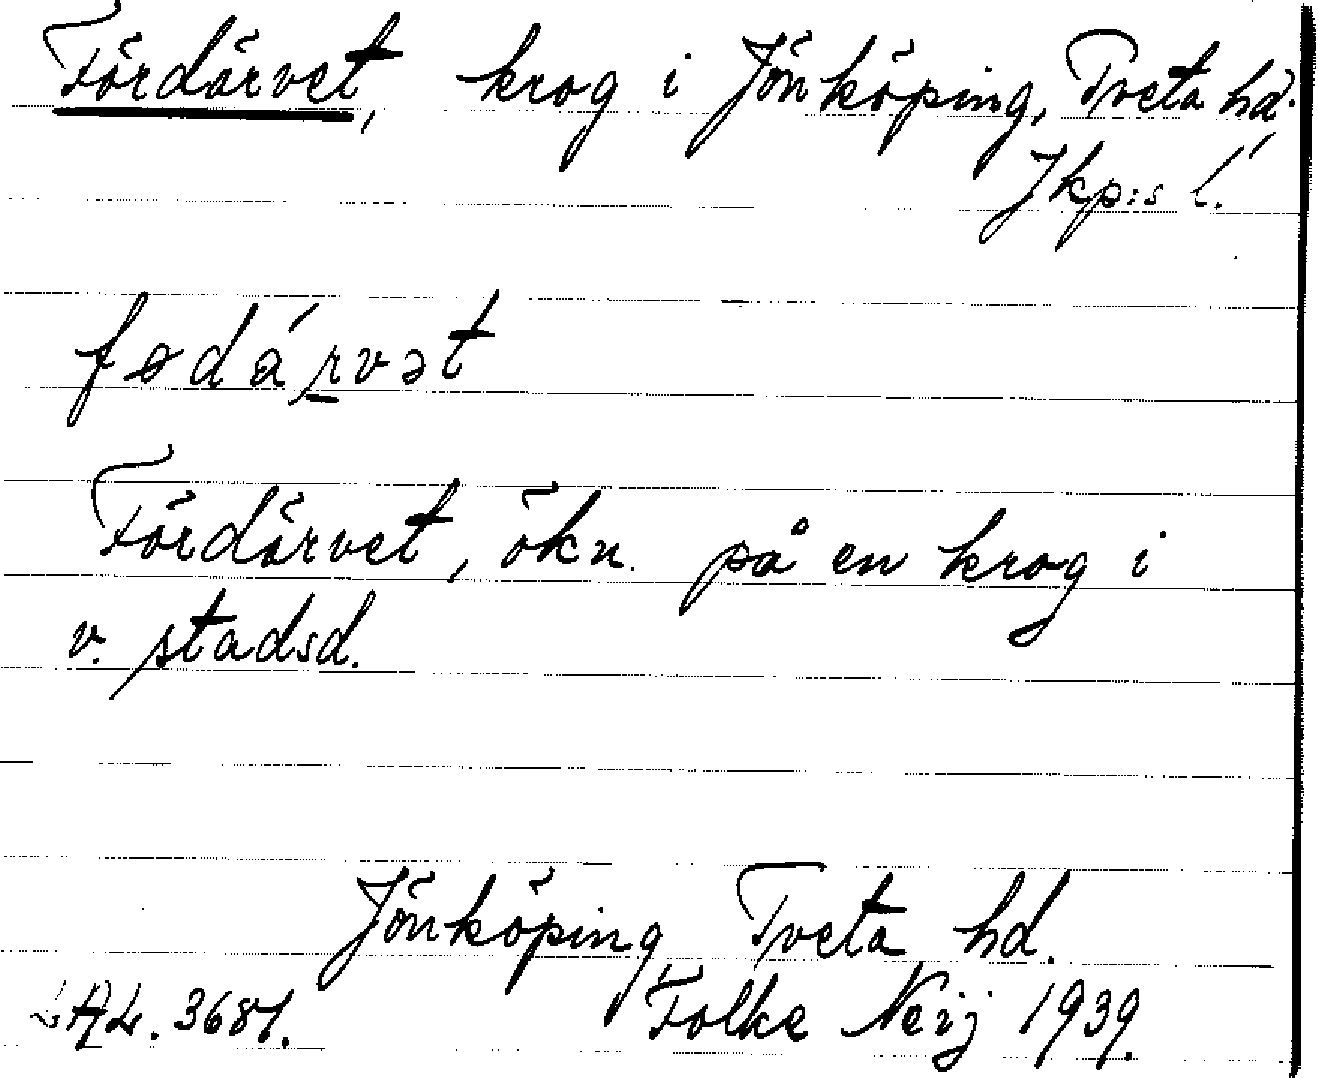 Fördärvet, krog i Jönköping, Tveta hd.
Jkp:s l.
fødá̈rvət
Fördärvet, ökn. på en krog i
v. stadsd.
Jönköping Tveta hd.
Folke Neij 1939.